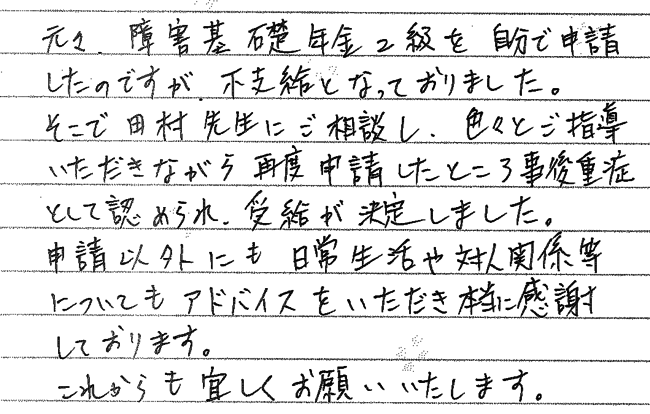 元々、障害基礎年金2級を自分で申請
したのですが、不支給となっておりました。
そこで田村先生にご相談し、色々とご指導
いただきながら再度申請したところ事後重症
として認められ、受給が決定しました。
申請以外にも日常生活や対人関係等
についてもアドバイスをいただき本当に感謝
しております。
これからも宜しくお願いいたします。